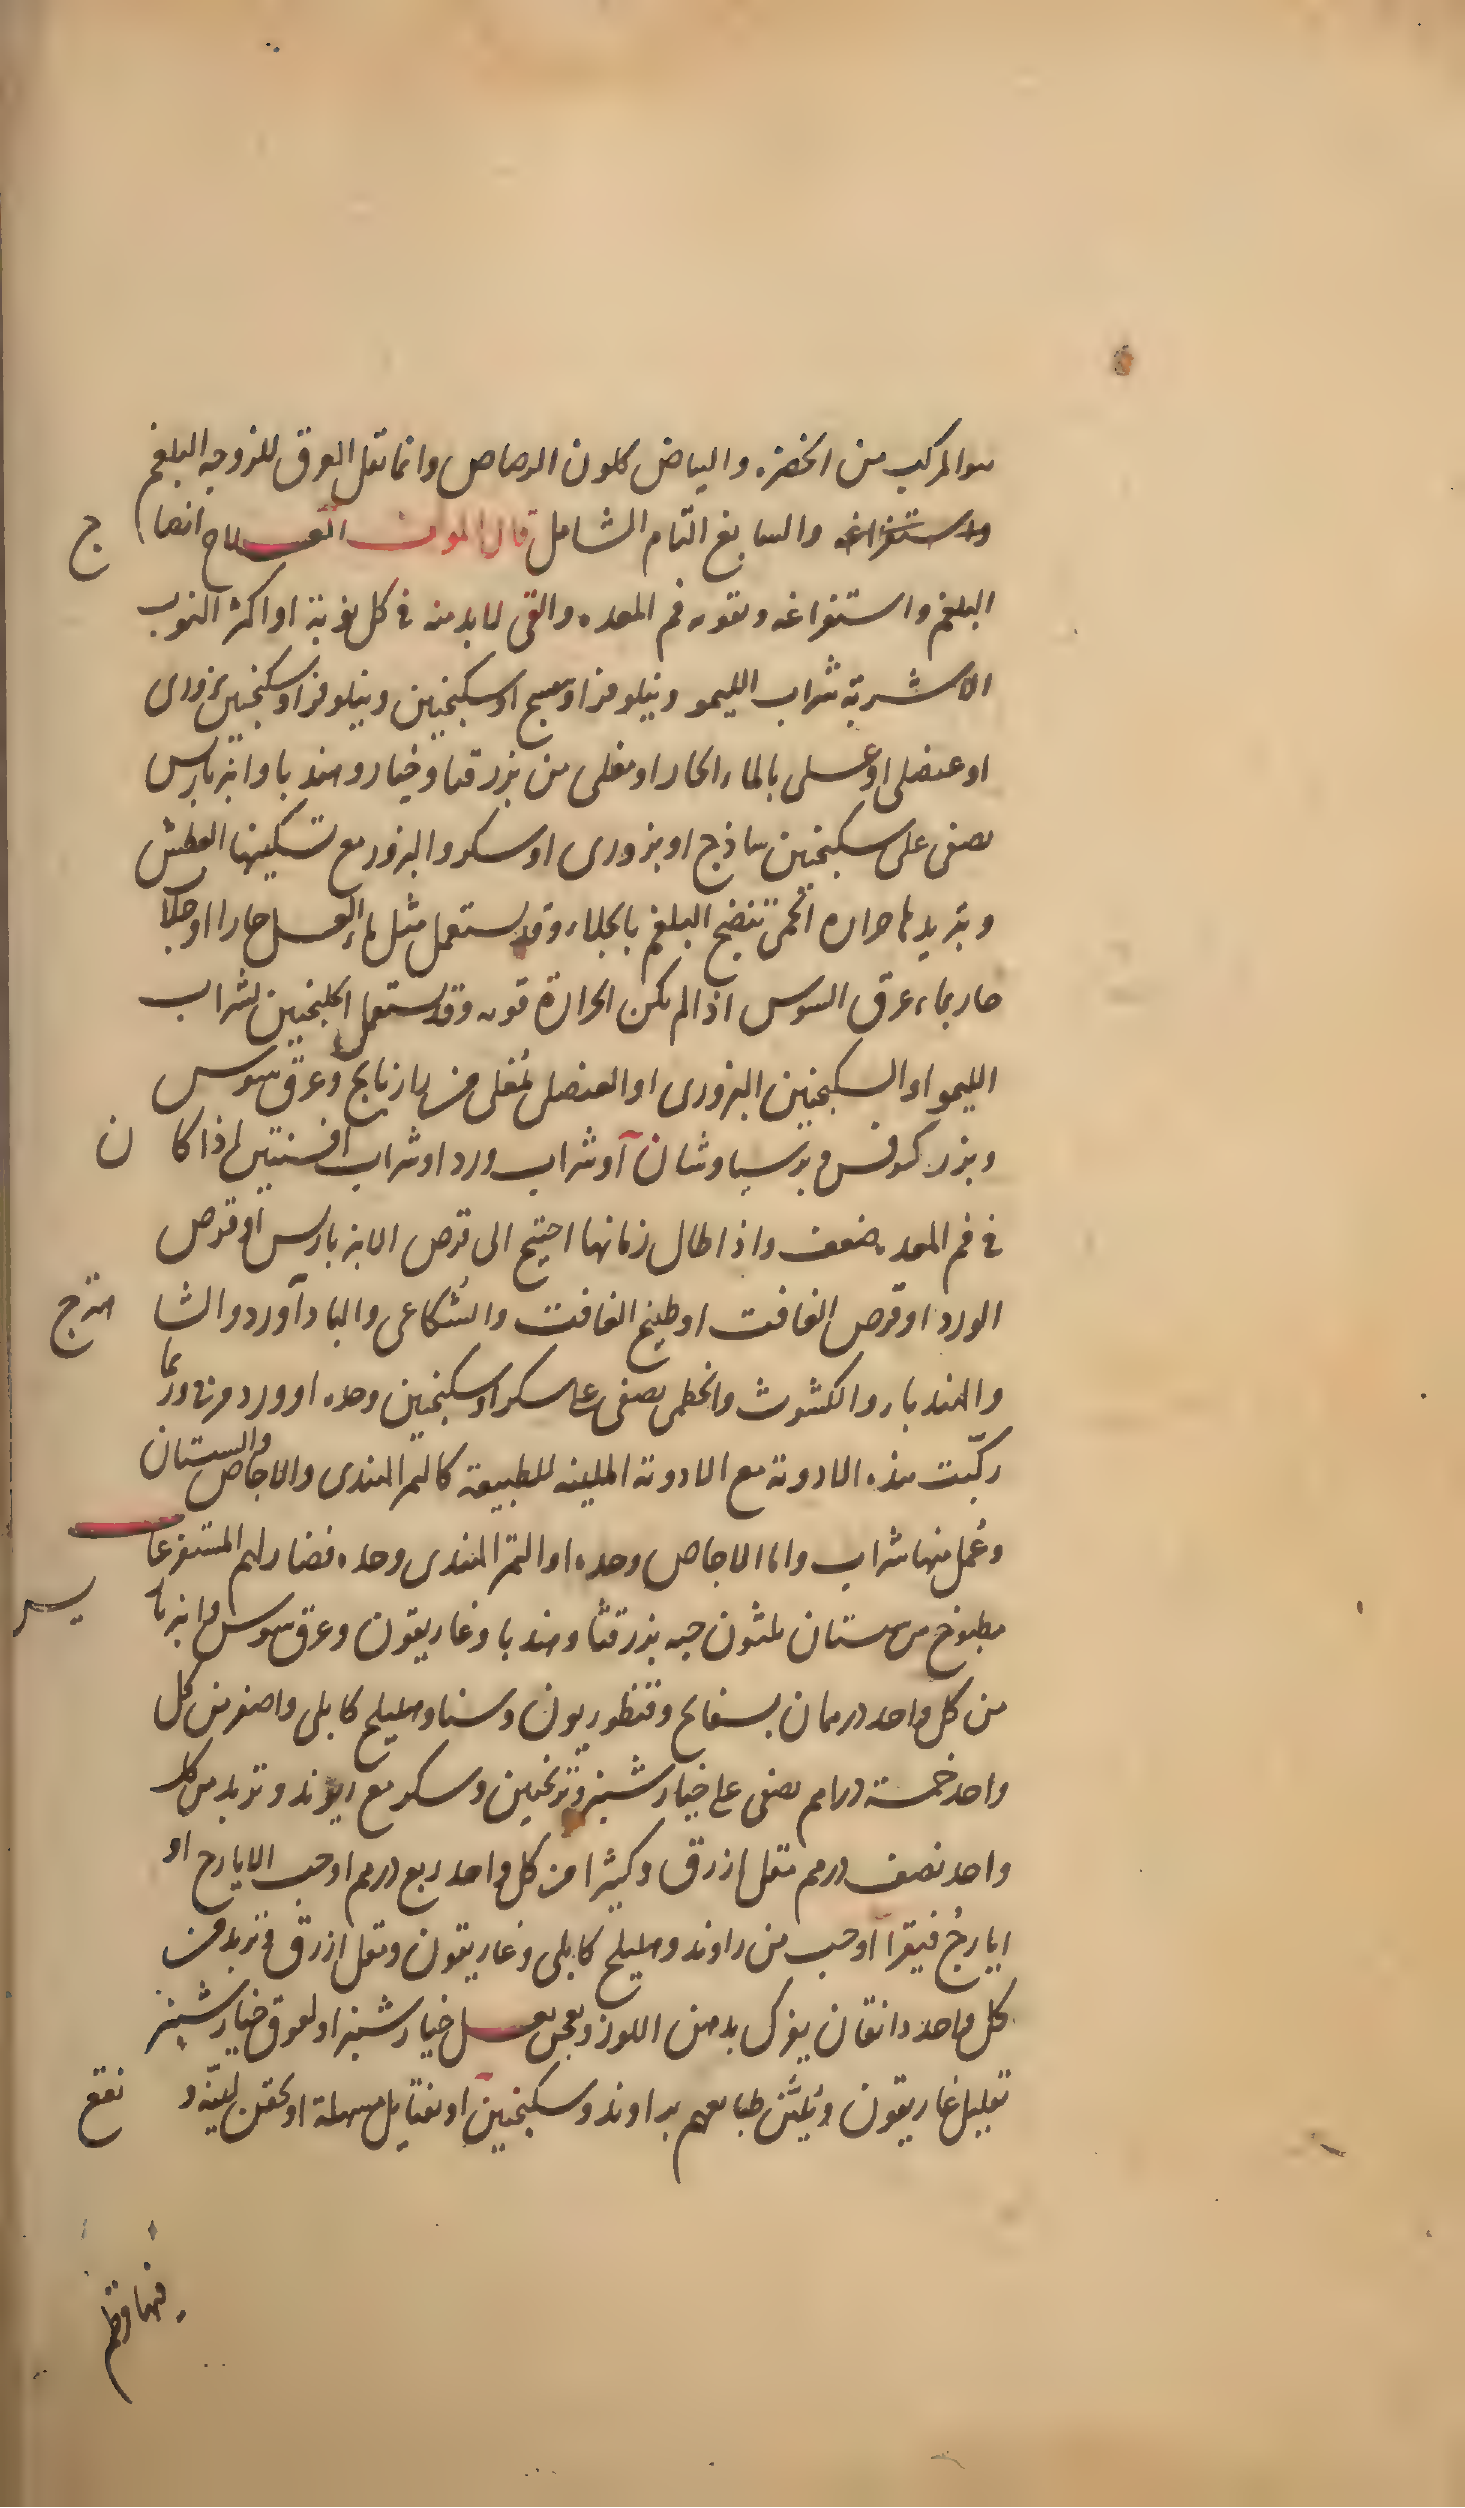 هو المركب من الخضرة والبياض كلون الرصاص وانما تقل العرق للزوجه البلغم
واستفراغه والسابغ التام الشامل قال المولف العلاج انضاج
البلغم واستفراغه وتقويه فم المعده والقى لابد منه فى كل نوبة او اكثر النوب
الاشربة شراب الليمو ونيلوفر او سكنجبين ونيلوفر او سكنجبين بزورى
او عنصلى او عسلى بالماء الحار او مغلى من بزر قثا وخيار وهندبا وانبرباريس
يصفى على سكنجبين ساذج او بزورى او سكر والبزور مع تسكينها العطش
وتبريدها حرارة الحمى تنضج البلغم بالجلاء وقد يستعمل مثل ماء العسل حارا او جلابا
حار بماء عرق السوس اذا لم يكن الحرارة قويه وقد يستعمل الجلنجبين بشراب
الليمو او السكنجبين البزورى او العنصلى بمغلى من رازيانج وعرق سوس
وبزر كرفس وبرسياوشان او شراب ورد او شراب افسنتين اذا كان
فى فم المعده ضعف واذا طال زمانها احتيج الى قرص الانبرباريس او قرص
الورد او قرص الغافت او طبيخ الغافت والشكاعى والباذاورد والشاهترج
والهندباء والكشوث والخطمى يصفى على سكر او سكنجبين وحده او ورد مربى وربما
ركّبت هذه الادوية مع الادوية الملينه للطبيعة كالتمر الهندى والاجاص والسبستان
وعُمل منها شراب واما الاجاص وحده او التمر الهندى وحده فضار لهم المستفرغات
مطبوخ من سبستان ثلثون حبه بزر قثا وهندبا وغاريقون وعرق سوس وانبرباريس
من كل واحد درهمان بسفايج وقنطوريون وسنا وهليلج كابلى واصفر من كل
واحد خمسة دراهم يصفى على خيار شنبر وترنجبين وسكر مع ريوند وتربد من كل
واحد نصف درهم مقل ازرق وكثيرا من كل واحد ربع درهم او حب الايارج او
ايارج فيقرا او حب من راوند وهليلج كابلى وغاريقون ومقل ازرق وتربد من
كل واحد دانقان يفرك بدهن اللوز ويعجن بعسل خيار شنبر او لعوق خيار شنبر
بقليل غاريقون ويُليّن طبايعهم براوند وسكنجبين او بفتايل مسهلة او بحقن لينة وتقع
فيها قطم